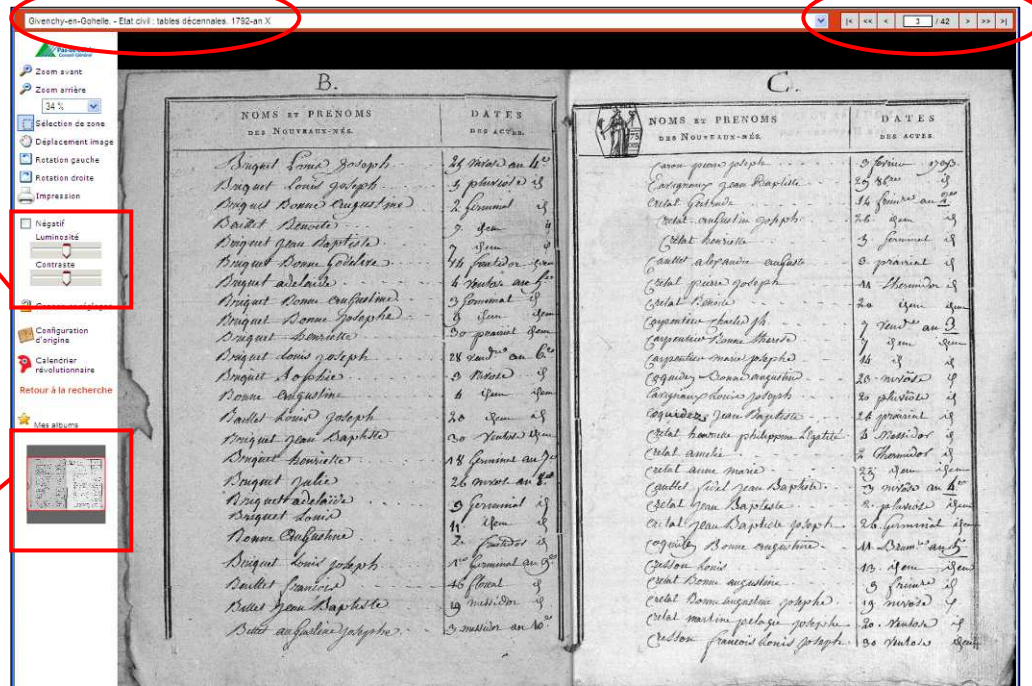 Givenchy-en-Gohelle. - Etat civil : tables décennales. 1792-an X
|< << < 3 / 42 > >> >|
Pas-de-Calais
Conseil Général
Zoom avant
Zoom arrière
34 %
Sélection de zone
Déplacement image
Rotation gauche
Rotation droite
Impression
Négatif
Luminosité
Contraste
Configuration d'origine
Calendrier révolutionnaire
Retour à la recherche
Mes albums
B.
NOMS ET PRENOMS DATES
DES NOUVEAUX-NÉS. DES ACTES.
Briquet Louis Joseph 4e
Briquet Louis Joseph 5 pluviose id
Briquet Bonne Augustine 2 Germinal id
Baillet 7 idem
Briquet Jean Baptiste 7 idem
Briquet Bonne Godelive fructidor idem
Briquet adelaide 4 Ventose an
Briquet Bonne Augustine 3 Germinal id
Briquet Bonne Josephe 8 idem idem
Briquet henriette 30 prairial idem
Briquet Louis Joseph 28 vend an 6
Briquet Sophie 3 Nivose id
Bonne Augustine 6 idem idem
Baillet Louis Joseph 20 idem id
Briquet Jean Baptiste 30 Ventose idem
Briquet henriette 18 Germinal an 7
Briquet Julie 26 nivose an 8
Briquet adelaïde 9 Germinal id
Briquet Louis 11 idem id
Bonne Augustine 2 fructidor id
Briquet Louis Joseph Germinal an 9
Baillet francois 16 floreal id
Billet Jean Baptiste 19 messidor id
Billet augustine Josephe 3 messidor an 10
C.
NOMS ET PRENOMS DATES
DES NOUVEAUX-NÉS. DES ACTES.
Caron pierre joseph 3 1793
Jean Baptiste 29 8bre id
Cretal Gertrude 14 frimre an 2
Cretal augustin joseph 26 idem id
Cretal henriette 3 Germinal id
Caullet alexandre auguste prairial id
Cretal pierre joseph 11 thermidor id
Cretal Benoite 20 idem idem
Carpentier charles jh 7 vendre au 3
Carpentier Bonne therese 7 idem idem
Carpentier marie josephe 14 id id
Coquidez Bonne augustine 23 nivôse id
Louis joseph 20 pluviose id
Coquidez Jean Baptiste 24 prairial id
Cretal henriette philippine 4 Messidor id
Cretal amelie 2 thermidor id
Cretal anne marie 23 idem idem
Caullet fidel Jean Baptiste 3 nivose an 4
Cretal Jean Baptiste 2 pluviose id
Cretal Jean Baptiste joseph 26 Germinal idem
Coquidez Bonne augustine 11 Brumre an 5
Cresson Louis 13 idem idem
Cretal Bonne augustine 3 frimre id
Cretal Bonne augustine josephe 19 nivose
Cretal martine pelagie josephe 20 Ventose id
Cresson francois Louis Joseph 30 Ventose idem